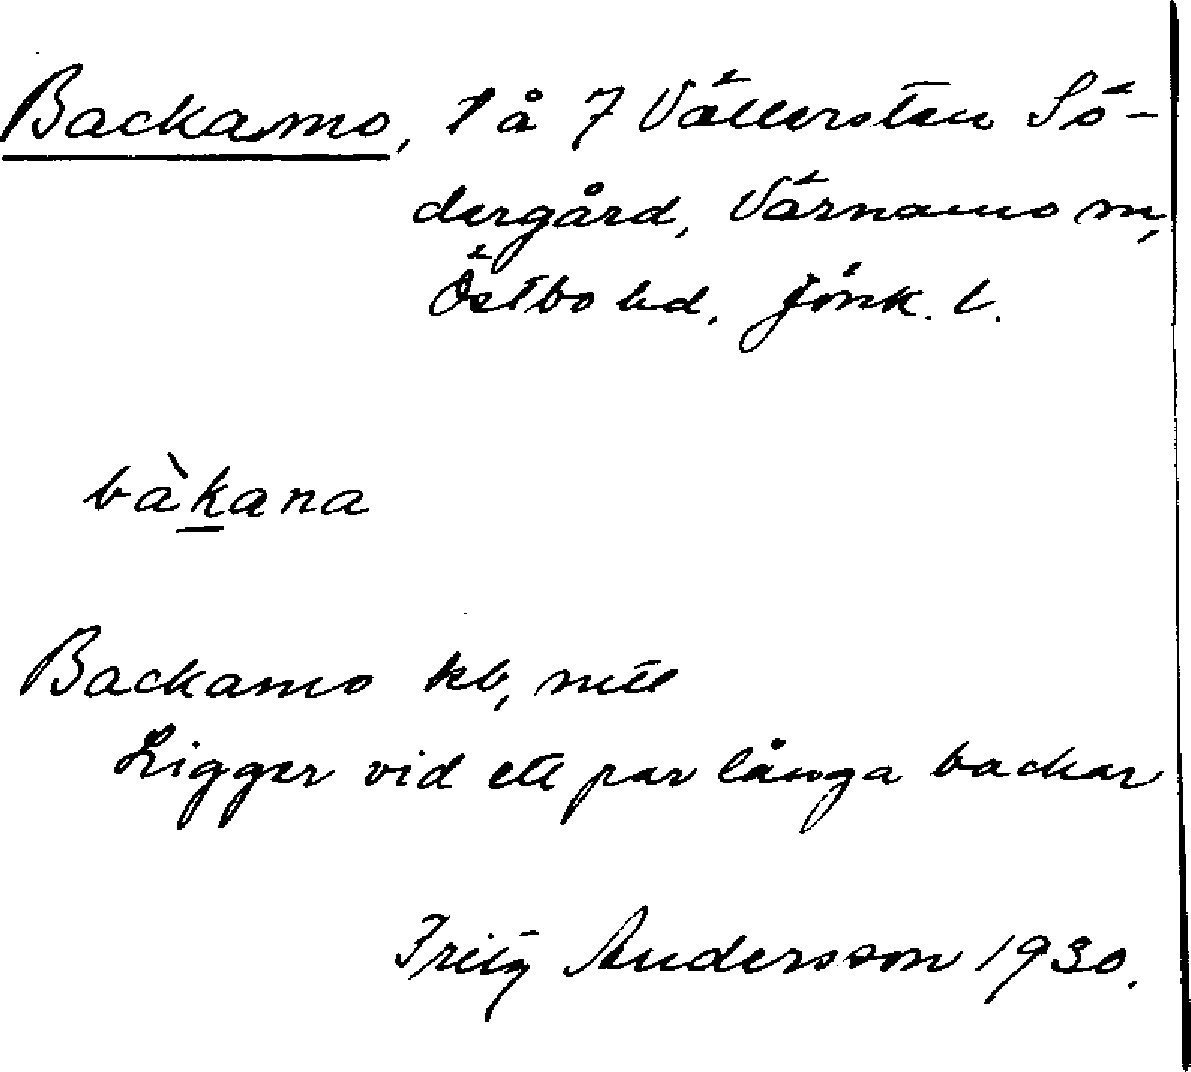 Backamo, 1 å 7 Vällersten Sö-
dergård, Värnamo sn,
Östbo hd, Jönk. l.
bàkana
Backamo kb,
Ligger vid ett par långa backar
Fritz Andersson 1930.